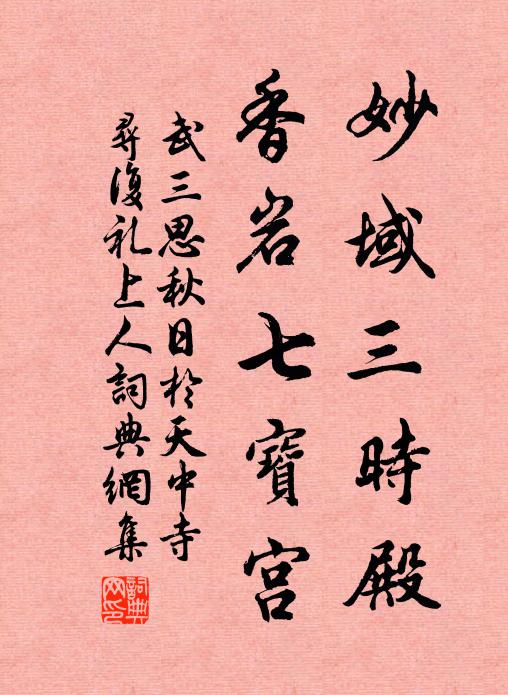 妙域三時殿
香岩七寶宮
武三思秋日於天中寺
尋復礼上人詞典網集
詞典網印